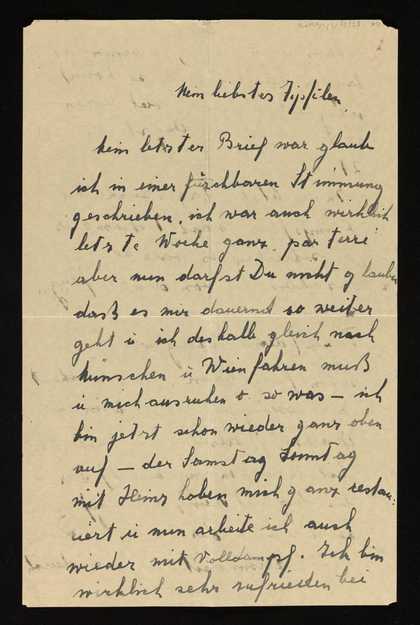 Mein liebstes Tipfilein,
Mein letzter Brief war glaub
ich in einer furchbaren Stimmung
geschrieben, ich war auch wirklich
letzte Woche ganz par terre
aber nun darfst Du nicht glauben
daß es mir dauernd so weiter
geht u ich deshalb gleich nach
München u Wien fahren muß
u mich ausruhen o so was – ich
bin jetzt schon wieder ganz oben
auf – der Samstag Sonntag
mit Heinz haben mich ganz restau:
riert u nun arbeite ich auch
wieder mit Volldampf. Ich bin
wirklich sehr zufrieden bei